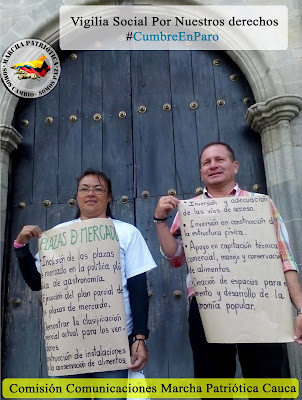 Vigilia Social Por Nuestros derechos
#CumbreEnParo
MARCHA PATRIÓTICA
SOMOS CAMBIO
PLAZAS D MERCADO.
Inclusión de las plazas
mercado en la política pública
de gastronomía.
Ejecución del plan parcial
plazas de mercado.
la clasificación
actual para los ven-
Construcción de instalaciones
la conservación de alimentos.
• Inversión y adecuación
de las vías de acceso.
• Inversión en construcción
estructura física.
• Apoyo en capitación técnica
comercial, manejo y conservación
de alimentos.
Creación de espacios para
y desarrollo de la
economía popular.
Comisión Comunicaciones Marcha Patriótica Cauca